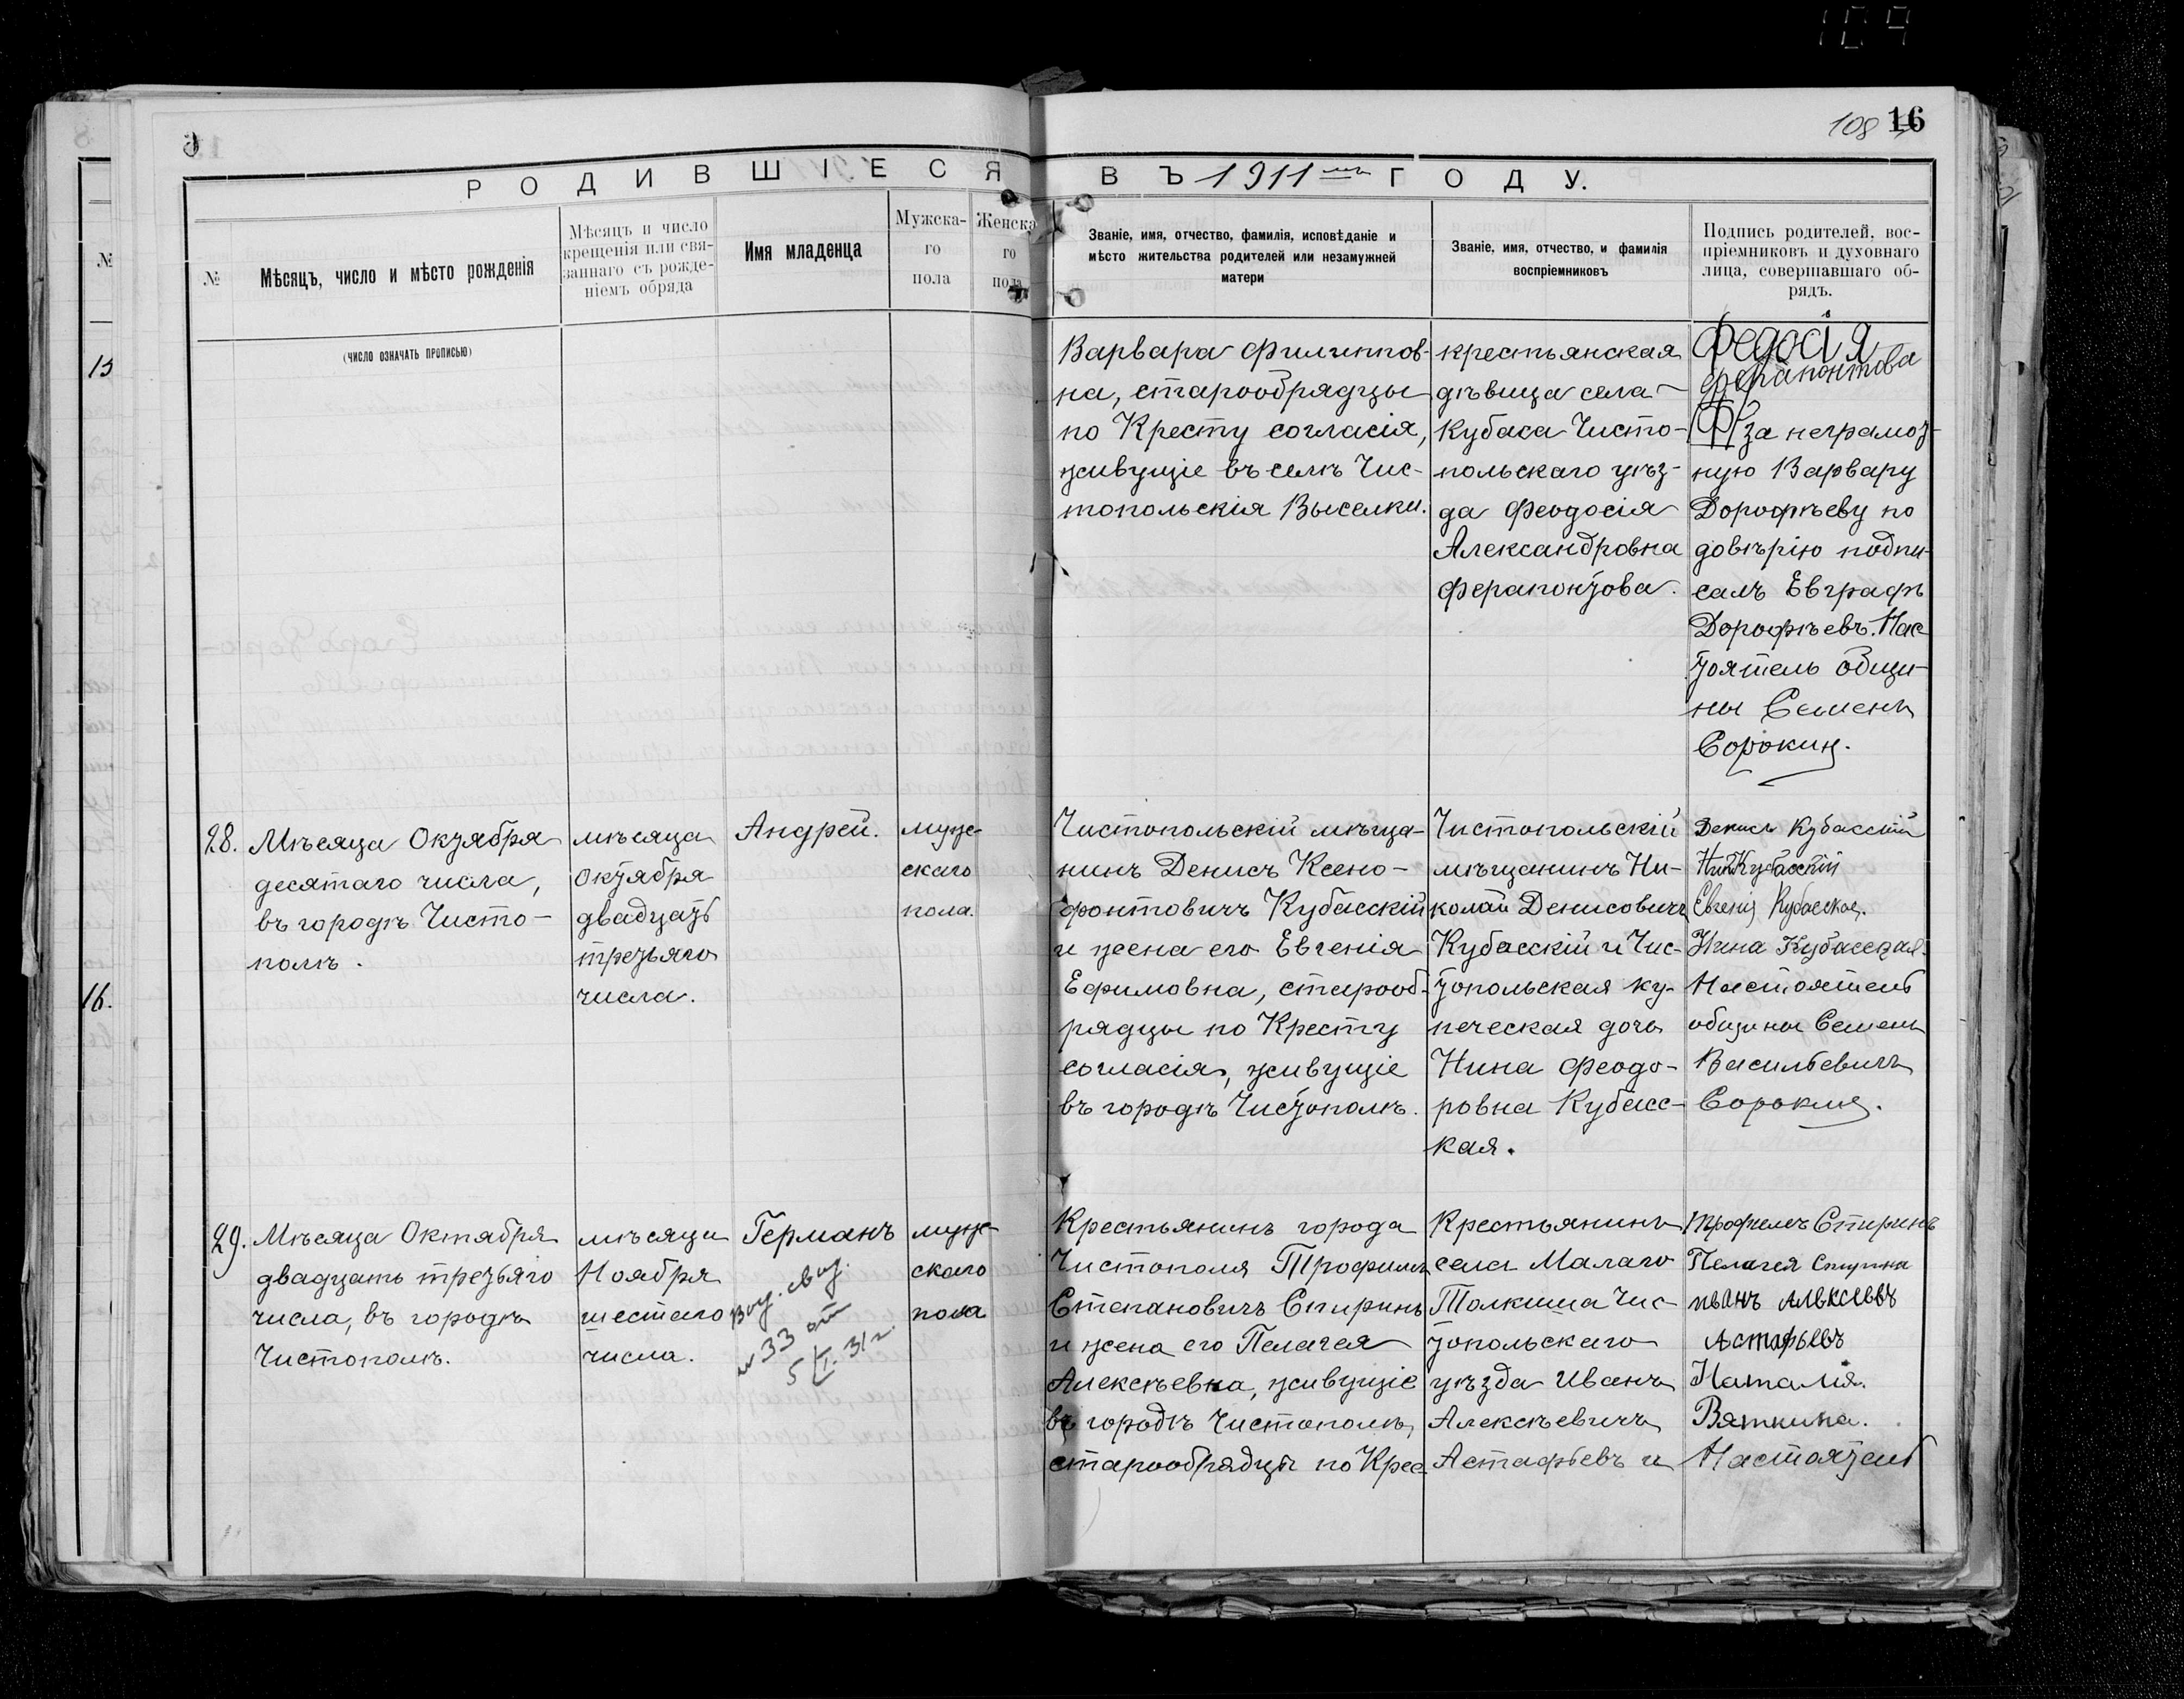 108 16
РОДИВШІЕСЯ ВЪ 1911мъ ГОДУ.
№
Мѣсяцъ, число и мѣсто рожденія
(число означать прописью)
Мѣсяцъ и число
крещенія или свя-
заннаго съ рожде-
ніемъ обряда
Имя младенца
Мужска-
го
пола
Женска
го
пола
Званіе, имя, отчество, фамилія, исповѣданіе и
мѣсто жительства родителей или незамужней
матери
Званіе, имя, отчество, и фамилія
воспріемниковъ
Подпись родителей, вос-
пріемниковъ и духовнаго
лица, совершавшаго об-
рядъ.
Варвара Филиппов-
на, старообрядцы
по Кресту согласія,
живущіе въ селѣ Чис-
топольскія Выселки.
крестьянская
дѣвица села
Кубаса Чисто-
польскаго уѣз-
да Феодосія
Александровна
Ферапонтова.
Федосія
Ферапонтова
за неграмот-
ную Варвару
Дорофѣеву по
довѣрію подпи-
салъ Евграфъ
Дорофѣевъ. Нас-
тоятель общи-
ны Семенъ
Сорокин.
15
16.
28.
Мѣсяца Октября
десятаго числа,
въ городѣ Чисто-
полѣ.
мѣсяца
Октября
двадцать
третьяго
числа.
Андрей.
муже-
скаго
пола.
Чистопольскій мѣща-
нинъ Денисъ Ксено-
фонтовичъ Кубасскій
и жена его Евгенія
Ефимовна, старооб-
рядцы по Кресту
согласія, живущіе
въ городѣ Чистополѣ.
Чистопольскій
мѣщанинъ Ни-
колай Денисовичъ
Кубасскій и Чис-
топольская ку-
печеская дочь
Нина Феодо-
ровна Кубасс-
кая.
Денисъ Кубасскій
Ник Кубасскій
Евгенія Кубасская.
Нина Кубасская.
Настоятель
общины Семенъ
Васильевичъ
Сорокин.
29.
Мѣсяца Октября
двадцать третьяго
числа, въ городѣ
Чистополѣ.
мѣсяца
Ноября
шестаго
числа.
Германъ
№ 33 от
5/I. 31 г.
муж-
скаго
пола
Крестьянинъ города
Чистополя Трофимъ
Степановичъ Спиринъ
и жена его Пелагея
Алексѣевна, живущіе
въ городѣ Чистополѣ,
старообрядцы по Крес
Крестьянинъ
села Малаго
Толкиша Чис-
топольскаго
уѣзда Иванъ
Алексѣевичъ
Астафьевъ и
Трофимъ Спиринъ
Пелагея Спирина
иванъ алексеевъ
Астафьевъ
Наталія
Вяткина.
Настоятель